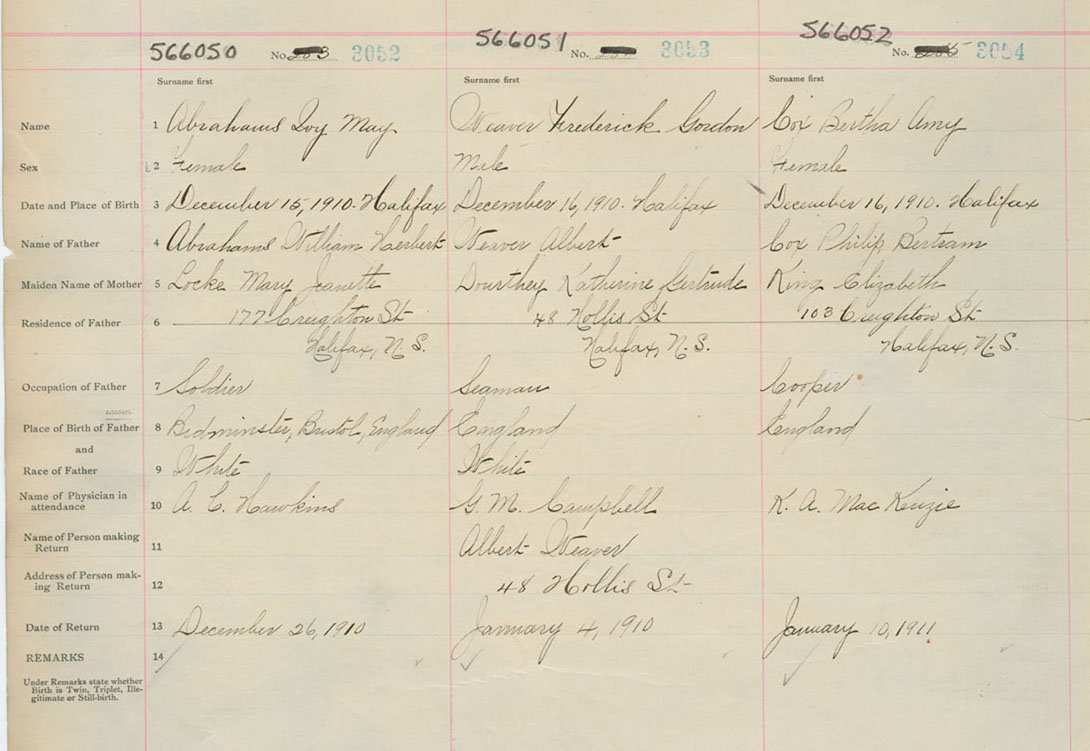 566050 No. 3052 566051 No. 3053 566052 No. 3054
Surname first Surname first Surname first
Name 1 Abrahams Ivy May Weaver Frederick Gordon Cox Bertha Amy
Sex 2 Female Male Female
Date and Place of Birth 3 December 15, 1910. Halifax December 16, 1910. Halifax December 16, 1910. Halifax
Name of Father 4 Abrahams William Herbert Weaver Albert Cox Philip Bertram
Maiden Name of Mother 5 Locke Mary Jeanette Dourthey Katherine Gertrude King Elizabeth
Residence of Father 6 177 Creighton St 48 Hollis St 103 Creighton St
Halifax, N.S. Halifax, N.S. Halifax, N.S.
Occupation of Father 7 Soldier Seaman Cooper
Place of Birth of Father 8 Bedminster, Bristol, England England England
and
Race of Father 9 White White
Name of Physician in
attendance 10 A. C. Hawkins G. M. Campbell K. A. Mac Kenzie
Name of Person making
Return 11 Albert Weaver
Address of Person mak-
ing Return 12 48 Hollis St
Date of Return 13 December 26, 1910 January 4, 1910 January 10, 1911
REMARKS 14
Under Remarks state whether
Birth is Twin, Triplet, Ille-
gitimate or Still-birth.